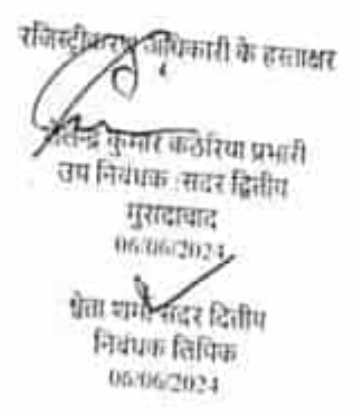 रजिस्ट्रीकरण अधिकारी के हस्ताक्षर
कुमार कठेरिया प्रभारी
उप निबंधक :सदर द्वितीय
मुरादाबाद
06/06/2024
श्वेता शर्मा सदर द्वितीय
निबंधक लिपिक
06/06/2024